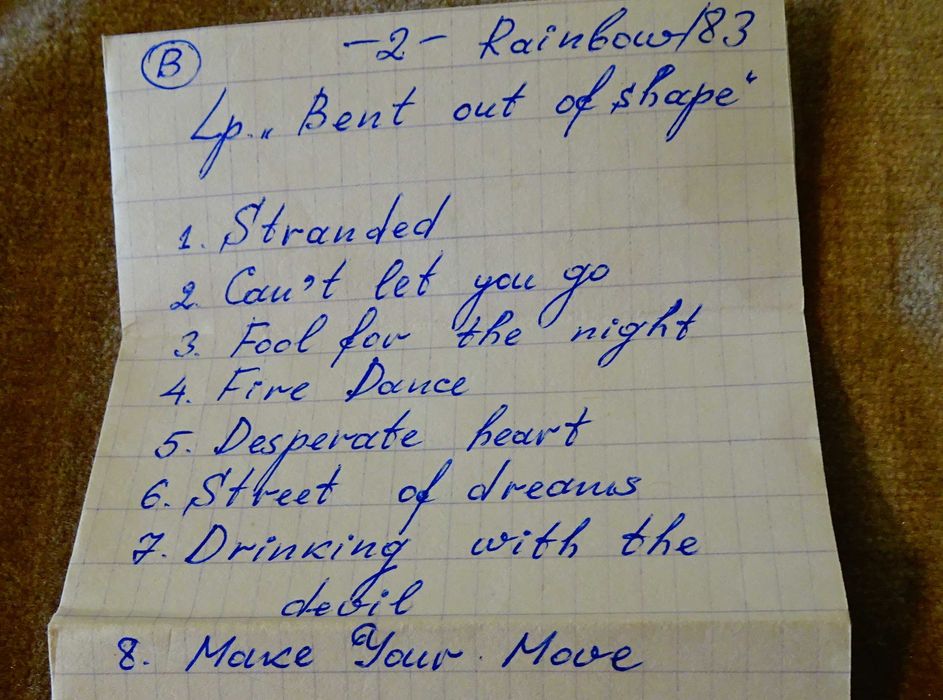 B -2- Rainbow/83
Lp. „Bent out of shape“
1. Stranded
2. Can't let you go
3. Fool for the night
4. Fire Dance
5. Desperate heart
6. Street of dreams
7. Drinking with the
devil
8. Make Your Move